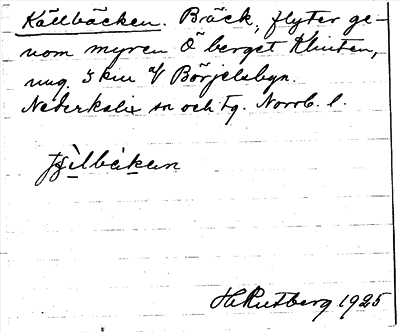 Källbäcken. Bräck, flyter ge-
nom myren Ö berget Klinten,
ung. 3 km af Börjelsbyn.
Nederkalix sn och tg. Norrb. l.
HRutberg 1925